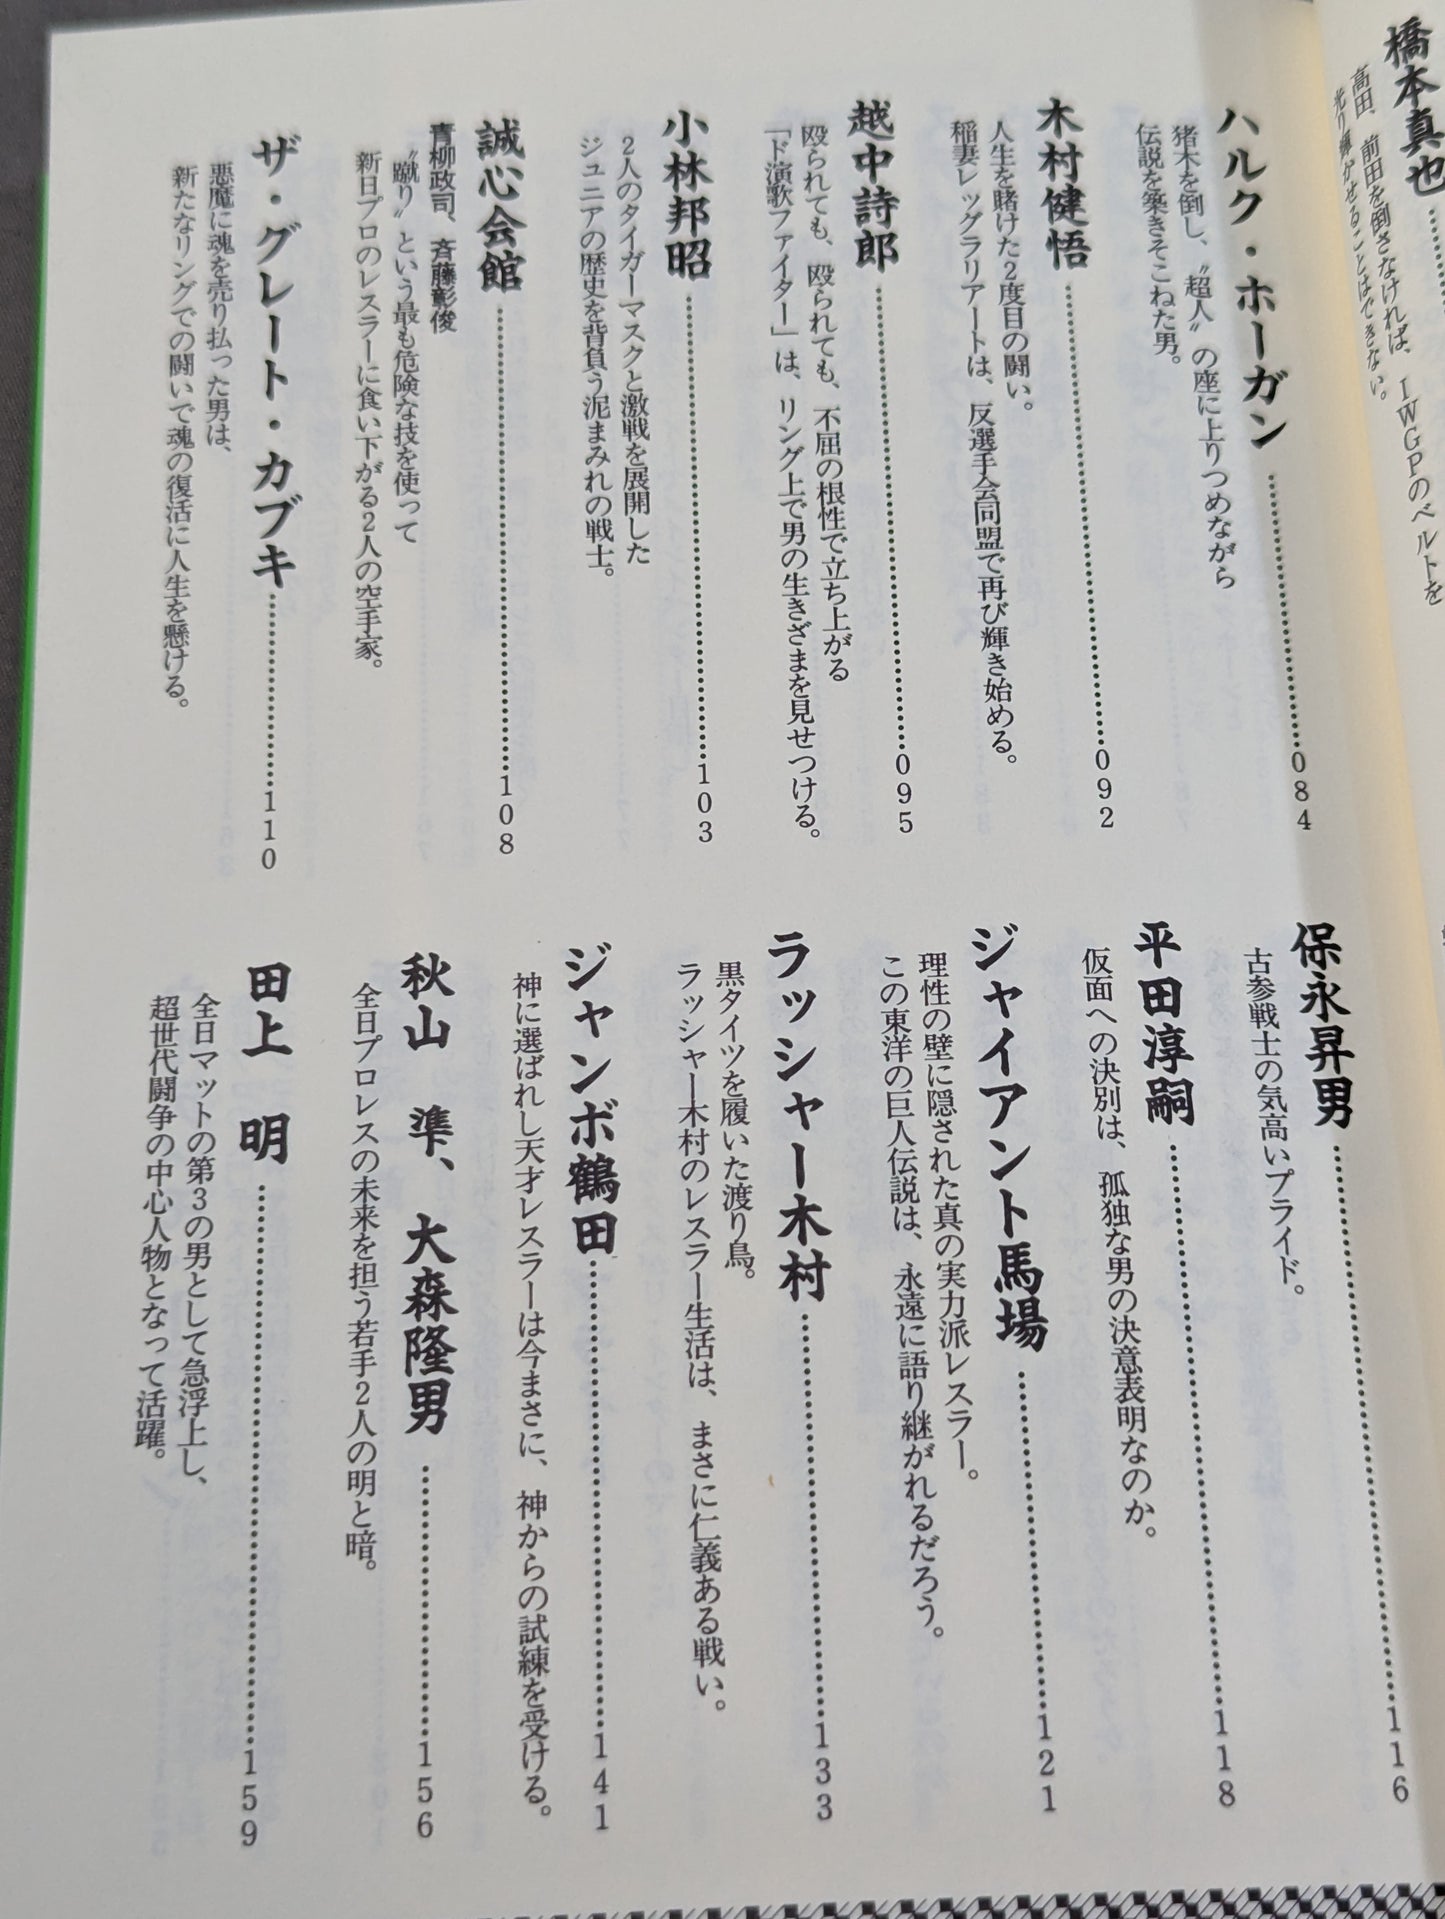 橋本真也
高田、前田を倒さなければ、IWGPのベルトを
光り輝かせることはできない。
ハルク・ホーガン 084
猪木を倒し、〝超人〟の座に上りつめながら
伝説を築きそこねた男。
木村健悟 092
人生を賭けた2度目の闘い。
稲妻レッグラリアートは、反選手会同盟で再び輝き始める。
越中詩郎 095
殴られても、殴られても、不屈の根性で立ち上がる
「ド演歌ファイター」は、リング上で男の生きざまを見せつける。
小林邦昭 103
2人のタイガーマスクと激戦を展開した
ジュニアの歴史を背負う泥まみれの戦士。
誠心会館 108
青柳政司、斉藤彰俊
〝蹴り〟という最も危険な技を使って
新日プロのレスラーに食い下がる2人の空手家。
ザ・グレート・カブキ 110
悪魔に魂を売り払った男は、
新たなリングでの闘いで魂の復活に人生を懸ける。
保永昇男 116
古参戦士の気高いプライド。
平田淳嗣 118
仮面への決別は、孤独な男の決意表明なのか。
ジャイアント馬場 121
理性の壁に隠された真の実力派レスラー。
この東洋の巨人伝説は、永遠に語り継がれるだろう。
ラッシャー木村 133
黒タイツを履いた渡り鳥。
ラッシャー木村のレスラー生活は、まさに仁義ある戦い。
ジャンボ鶴田 141
神に選ばれし天才レスラーは今まさに、神からの試練を受ける。
秋山 準、大森隆男 156
全日プロレスの未来を担う若手2人の明と暗。
田上 明 159
全日マットの第3の男として急浮上し、
超世代闘争の中心人物となって活躍。